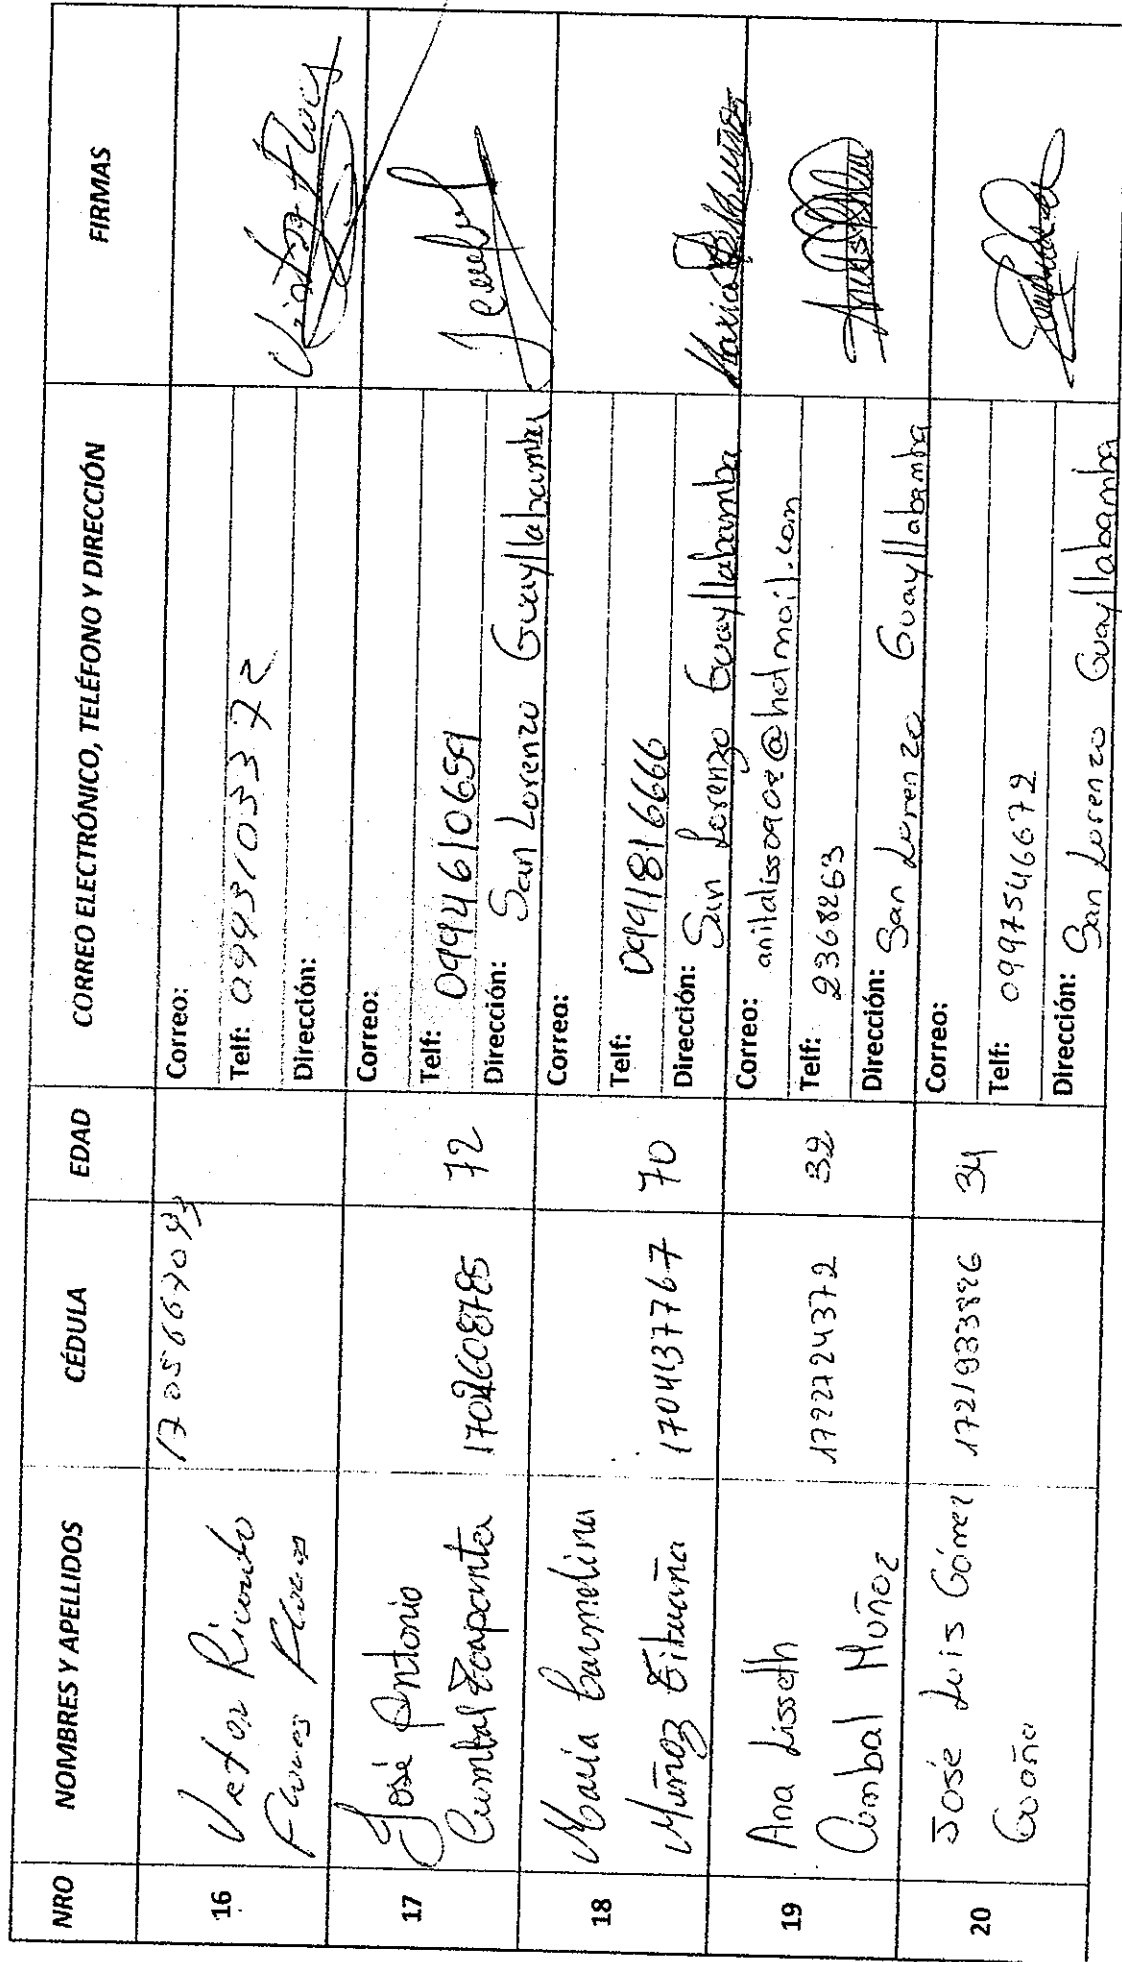 NRO NOMBRES Y APELLIDOS CÉDULA EDAD CORREO ELECTRÓNICO, TELÉFONO Y DIRECCIÓN FIRMAS
16
Victor Ricardo
Flores Flores
Correo:
Telf: 0993103372
Dirección:
Victor Flores
17
José Antonio
Cumbal Toapanta
72
Correo:
Telf: 0994610659
Dirección: San Lorenzo Guayllabamba
18
María Carmelina
Muñoz Tituaña
1704137767
70
Correo:
Telf: 0991816666
Dirección: San Lorenzo Guayllabamba
Maria Muñoz
19
Ana Lisseth
Cumbal Muñoz
1722724372
32
Correo: anitaliss0902@hotmail.com
Telf: 2368263
Dirección: San Lorenzo Guayllabamba
20
José Luis Gómez
Guaña
1721933826
34
Correo:
Telf: 0997546672
Dirección: San Lorenzo Guayllabamba